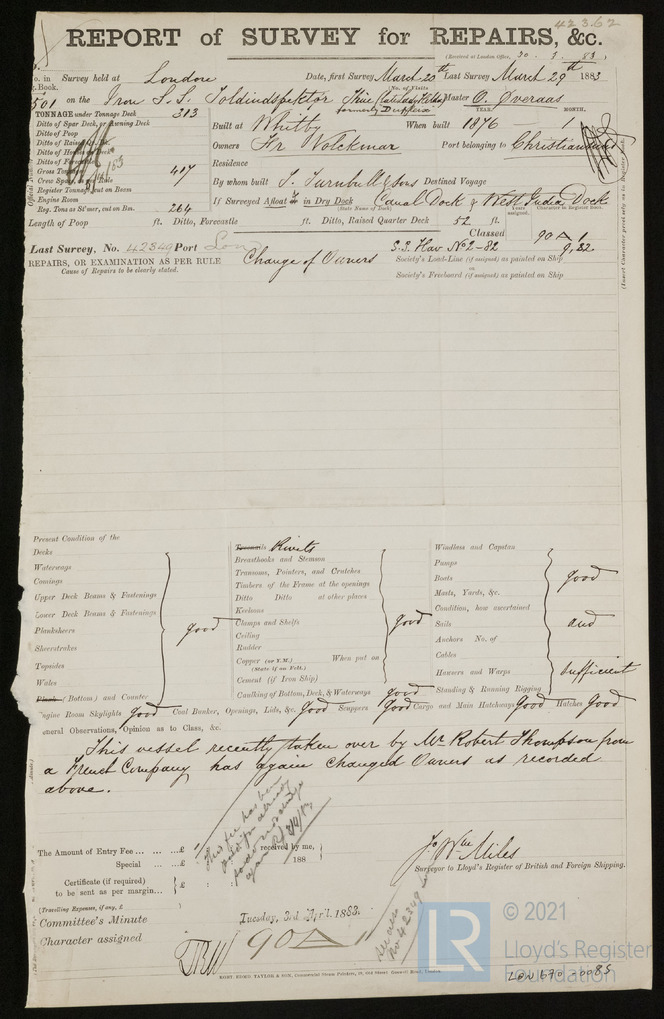 42362
REPORT of SURVEY for REPAIRS, &c.
(Received at London Office, 30. 3. 83.)
o. in Survey held at London Date, first Survey March 20th Last Survey March 29th 1883
. Book. (No. of Visits )
501 on the Iron S.S. Toldindspektor Thiis (late Lady Hilda) Master O. Øveraas
formerly
TONNAGE under Tonnage Deck 313
YEAR. MONTH.
Ditto of Spar Deck, or Awning Deck
Built at Whitby When built 1876
Ditto of Poop
Ditto of Raised Qr. Dk.
Owners Fr Volckmar Port belonging to Christiansund
Ditto of Houses on Deck
Ditto of Forecastle
Residence
Gross Tonnage 407
Crew Space as per Rule
By whom built T. Turnbull & Sons Destined Voyage
Register Tonnage cut on Beam
Engine Room
If Surveyed Afloat or in Dry Dock Canal Dock & West India Dock
Reg. Tons as St'mer, cut on Bm. 264
(State Name of Dock.)
Years assigned. Character in Register Book.
Length of Poop ft. Ditto, Forecastle ft. Ditto, Raised Quarter Deck 52 ft.
Classed 90A1
Last Survey, No. 42349 Port Lon
S.S. Haw No 2-82 9,82
REPAIRS, OR EXAMINATION AS PER RULE
Change of Owners
Society's Load-Line (if assigned) as painted on Ship
Cause of Repairs to be clearly stated.
or
Society's Freeboard (if assigned) as painted on Ship
(Insert Character precisely as in Register Book.
Present Condition of the
Decks
Waterways
Comings
Upper Deck Beams & Fastenings
Lower Deck Beams & Fastenings
Planksheers
good
Sheerstrakes
Topsides
Wales
Plank (Bottom) and Counter
Treenails Rivets
Breasthooks and Stemson
Transoms, Pointers, and Crutches
Timbers of the Frame at the openings
Ditto Ditto at other places
Keelsons
Clamps and Shelfs
good
Ceiling
Rudder
Copper (or Y.M.) When put on
(State if on Felt.)
Cement (if Iron Ship)
Caulking of Bottom, Deck, & Waterways good
Windlass and Capstan
Pumps
Boats
good
Masts, Yards, &c.
Condition, how ascertained
Sails
and
Anchors No. of
Cables
Hawsers and Warps
sufficient
Standing & Running Rigging
ngine Room Skylights good Coal Bunker, Openings, Lids, &c. good Scuppers good Cargo and Main Hatchways good Hatches good
eneral Observations, Opinion as to Class, &c.
This vessel recently taken over by Mr Robert Thompson from
a French Company has again changed Owners as recorded
above.
This fee has been
paid for already
The Amount of Entry Fee ... ... ...£ : : received by me,
Special ... ...£ : : 188
Certificate (if required)
to be sent as per margin... } £
(Travelling Expenses, if any, £ )
Jo Wm Miles
Surveyor to Lloyd's Register of British and Foreign Shipping.
Committee's Minute Tuesday, 3rd April, 1883.
Character assigned 90A1.
See also
No 42349
KENT EDWD. TAYLOR & SON, Commercial Steam Printers,
LR
© 2021
Lloyd's Register
Foundation
LON 690-0085